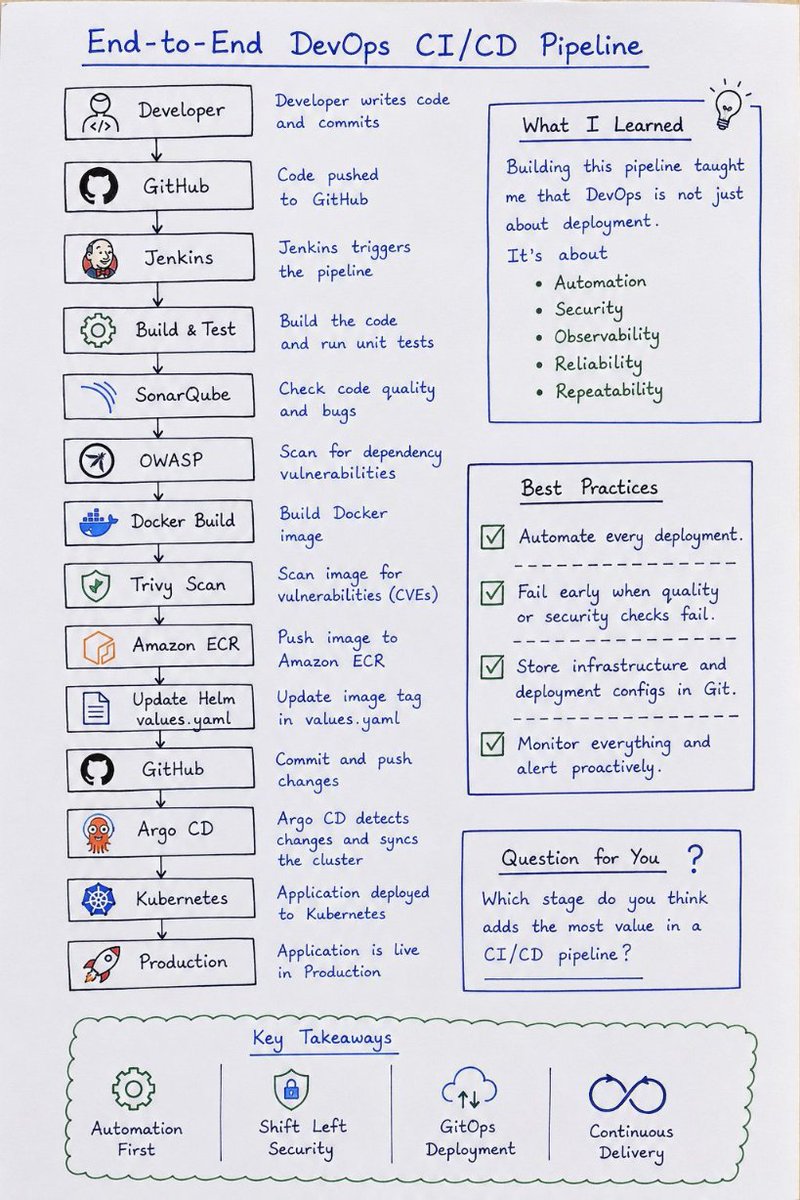 End-to-End DevOps CI/CD Pipeline
</>
Developer
Developer writes code
and commits
GitHub
Code pushed
to GitHub
Jenkins
Jenkins triggers
the pipeline
Build & Test
Build the code
and run unit tests
SonarQube
Check code quality
and bugs
OWASP
Scan for dependency
vulnerabilities
Docker Build
Build Docker
image
Trivy Scan
Scan image for
vulnerabilities (CVEs)
Amazon ECR
Push image to
Amazon ECR
Update Helm
values.yaml
Update image tag
in values.yaml
GitHub
Commit and push
changes
Argo CD
Argo CD detects
changes and syncs
the cluster
Kubernetes
Application deployed
to Kubernetes
Production
Application is live
in Production
What I Learned
Building this pipeline taught
me that DevOps is not just
about deployment.
It's about
• Automation
• Security
• Observability
• Reliability
• Repeatability
Best Practices
Automate every deployment.
Fail early when quality
or security checks fail.
Store infrastructure and
deployment configs in Git.
Monitor everything and
alert proactively.
Question for You ?
Which stage do you think
adds the most value in a
CI/CD pipeline?
Key Takeaways
Automation
First
Shift Left
Security
GitOps
Deployment
Continuous
Delivery